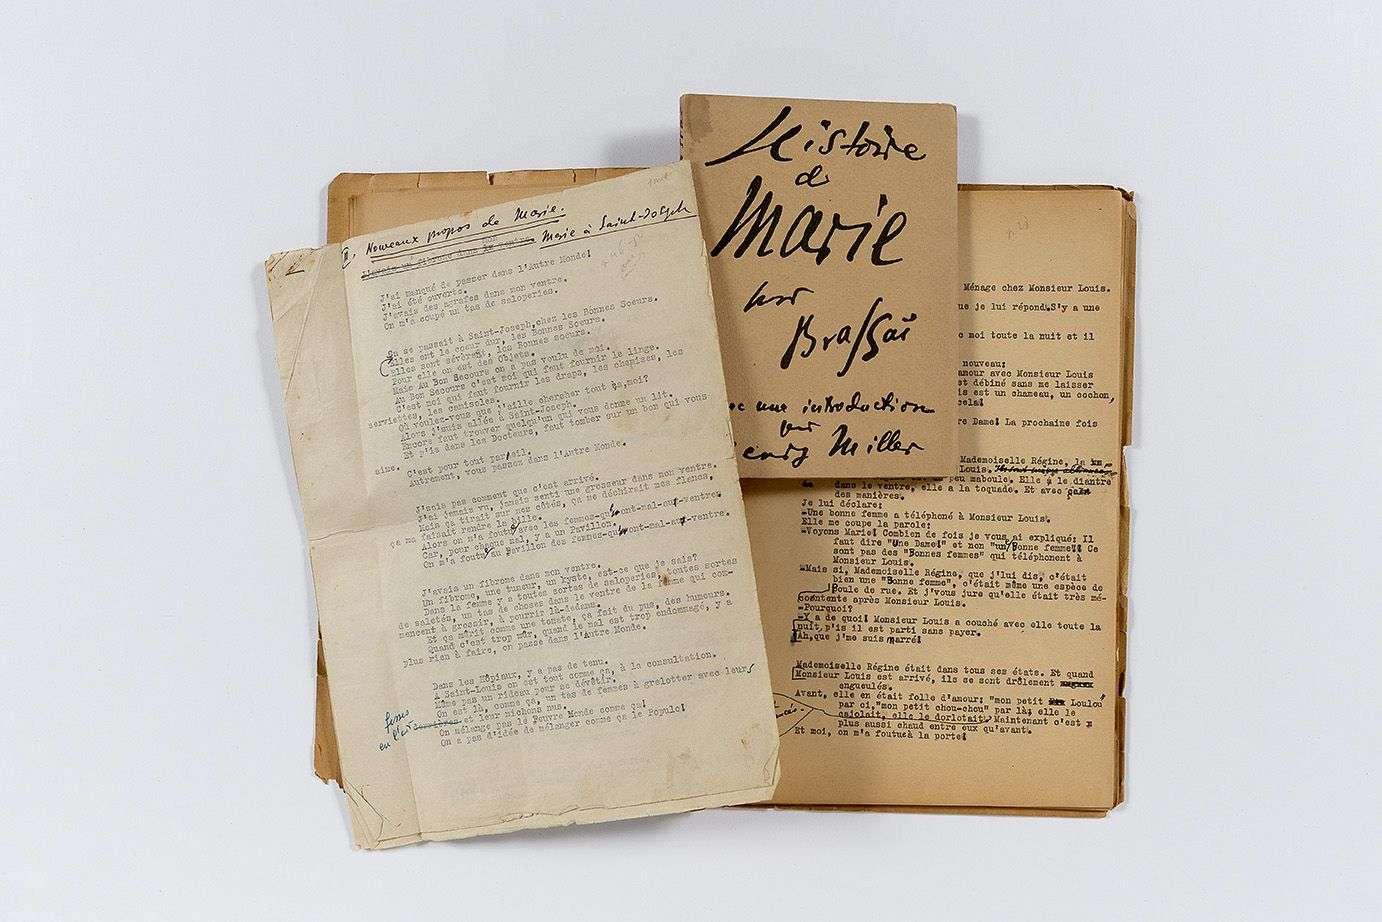 II. Nouveaux propos de Marie.
Marie à Saint-Joseph
J'ai manqué de passer dans l'Autre Monde!
J'ai été ouverte.
J'avais des agrafes dans mon ventre.
On m'a coupé un tas de saloperies.
se passait à Saint-Joseph, chez les Bonnes Soeurs.
Elles ont le coeur dur, les Bonnes Soeurs.
Elles sont sévères, les Bonnes soeurs.
Pour elle on est des Objets.
Mais Au Bon Secours on a pas voulu de moi.
Au Bon Secours c'est moi qui faut fournir le linge.
C'est moi qui faut fournir les draps, les chemises, les
serviettes, les camisoles.
Où voulez-vous que j'aille chercher tout ça, moi?
Alors j'suis allée à Saint-Joseph.
Encore faut trouver quelqu'un qui vous donne un lit.
Et p'is dans les Docteurs, faut tomber sur un bon qui vous
aime.
C'est pour tout pareil.
Autrement, vous passez dans l'Autre Monde.
J'sais pas comment que c'est arrivé.
J'ai jamais vu, jamais senti une grosseur dans mon ventre.
Mais ça tirait sur mes côtés, ça me déchirait mes flancs,
ça me faisait rendre la bile.
Alors on m'a foutu avec les femmes-qu'ont-mal-au-ventre.
Car, pour chaque mal, y a un Pavillon.
On m'a foutu au Pavillon des femmes-qu'ont-mal-au-ventre.
J'avais un fibrome dans mon ventre.
Un fibrome, une tumeur, un kyste, est-ce que je sais?
Dans la femme y a toutes sortes de saloperies, toutes sortes
de saletés, un tas de choses dans le ventre de la femme qui com-
mencent à grossir, à pourrir là-dedans.
Et ça mûrit comme une tomate, ça fait du pus, des humeurs.
Quand c'est trop mûr, quand le mal est trop endommagé, y a
plus rien à faire, on passe dans l'Autre Monde.
Dans les Hôpitaux, y a pas de tenu.
A Saint-Louis on est tout comme ça, à la consultation.
Même pas un rideau pour se dévêtir.
On est là, comme ça, un tas de femmes à grelotter avec leurs
fesses
en l'air
et leur nichons nus.
On mélange pas le Pauvre Monde comme ça!
On a pas d'idée de mélanger comme ça le Populo!
Histoire
de
Marie
par
Brassaï
une introduction
par
Henry Miller
Ménage chez Monsieur Louis.
que je lui répond. S'y a une
moi toute la nuit et il
nouveau:
amour avec Monsieur Louis
est débiné sans me laisser
is est un chameau, un cochon,
cela!
re Dame! La prochaine fois
Mademoiselle Régine, la
Louis.
peu maboule. Elle a le diantre
dans le ventre, elle a la toquade. Et avec ça
des manières.
Je lui déclare:
-Une bonne femme a téléphoné à Monsieur Louis.
Elle me coupe la parole:
-Voyons Marie! Combien de fois je vous ai expliqué: Il
faut dire "Une Dame!" et non "un' Bonne femme"! Ce
sont pas des "Bonnes femmes" qui téléphonent à
Monsieur Louis.
-Mais si, Mademoiselle Régine, que j'lui dis, c'était
bien une "Bonne femme", c'était même une espèce de
Poule de rue. Et j'vous jure qu'elle était très mé-
contente après Monsieur Louis.
-Pourquoi?
-Y a de quoi! Monsieur Louis a couché avec elle toute la
nuit, p'is il est parti sans payer.
Ah, que j'me suis marré!
Mademoiselle Régine était dans tous ses états. Et quand
Monsieur Louis est arrivé, ils se sont drôlement
engueulés.
Avant, elle en était folle d'amour; "mon petit Loulou"
par ci, "mon petit chou-chou" par là; elle le
cajolait, elle le dorlotait. Maintenant c'est
plus aussi chaud entre eux qu'avant.
Et moi, on m'a foutu à la porte!